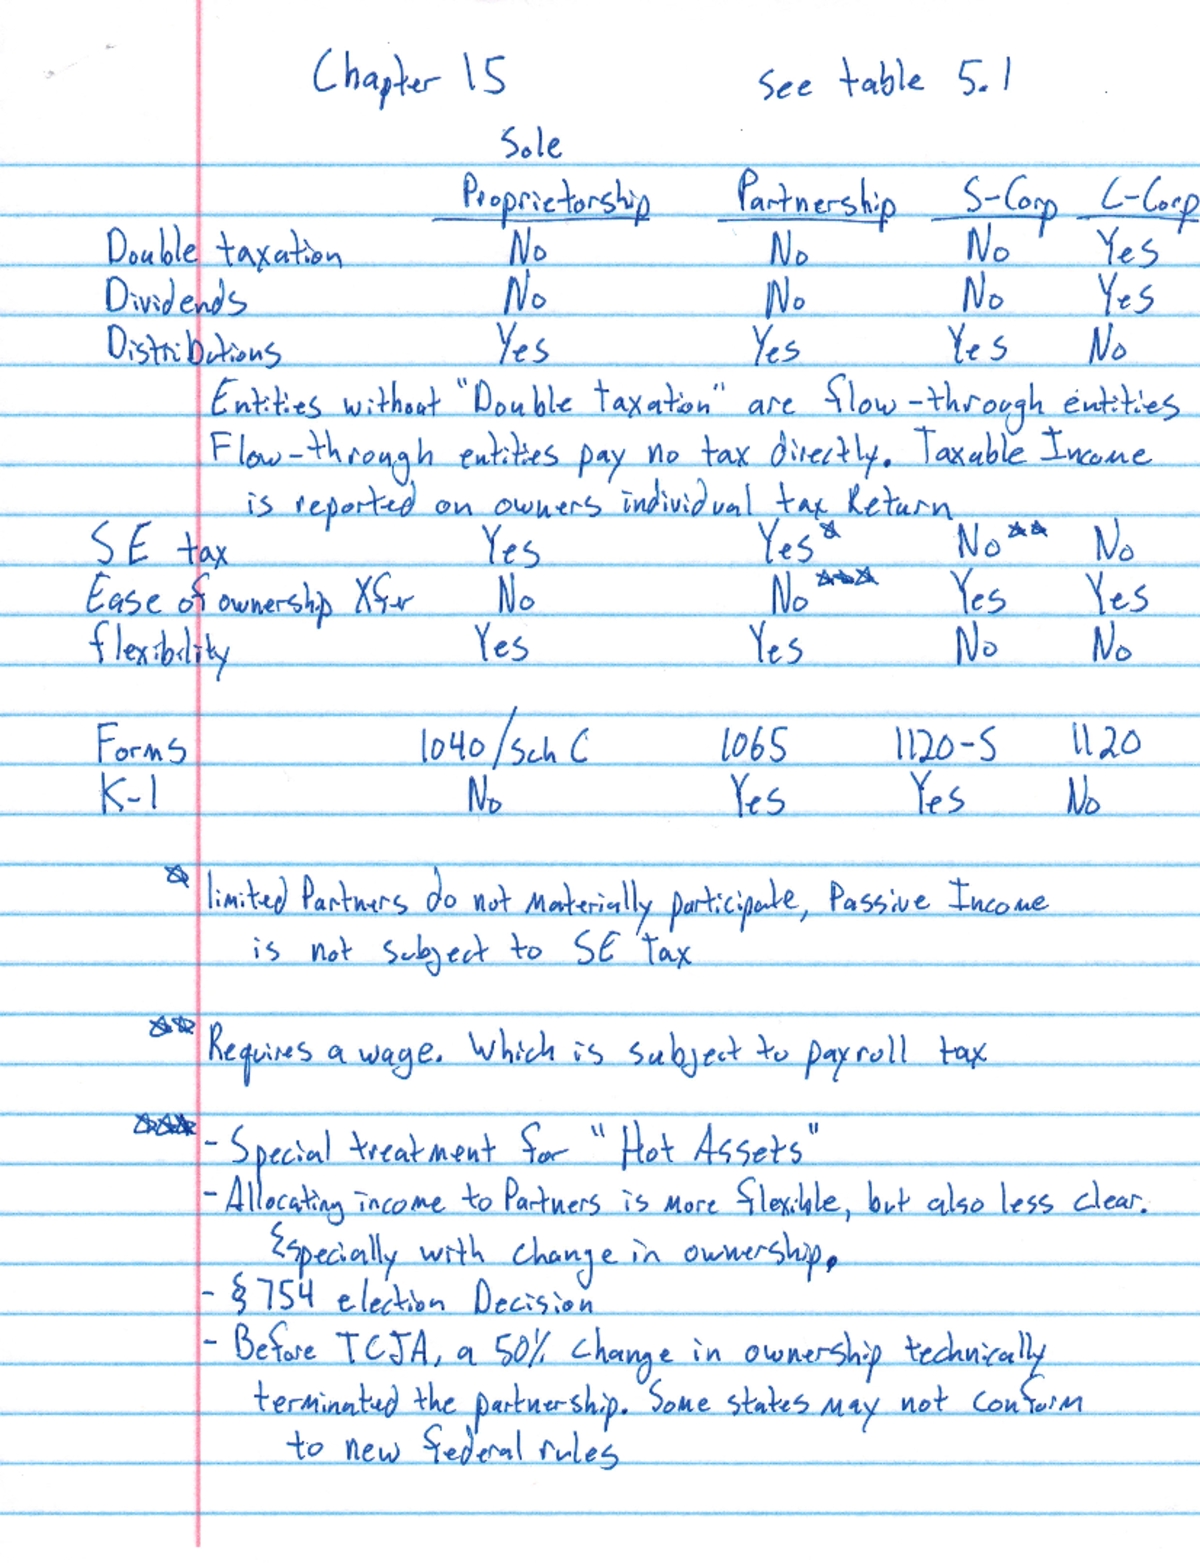 Chapter 15 See table 5.1
Sole
Proprietorship Partnership S-Corp C-Corp
Double taxation No No No Yes
Dividends No No No Yes
Distributions Yes Yes Yes No
Entities without "Double taxation" are flow-through entities
Flow-through entities pay no tax directly. Taxable Income
is reported on owners individual tax Return
SE tax Yes Yes* No** No
Ease of ownership Xfer No No*** Yes Yes
flexibility Yes Yes No No
Forms 1040/Sch C 1065 1120-S 1120
K-1 No Yes Yes No
* limited Partners do not materially participate, Passive Income
is not subject to SE Tax
** Requires a wage. Which is subject to payroll tax
*** - Special treatment for "Hot Assets"
- Allocating income to Partners is more flexible, but also less clear.
Especially with change in ownership.
- § 754 election Decision
- Before TCJA, a 50% change in ownership technically
terminated the partnership. Some states may not conform
to new federal rules